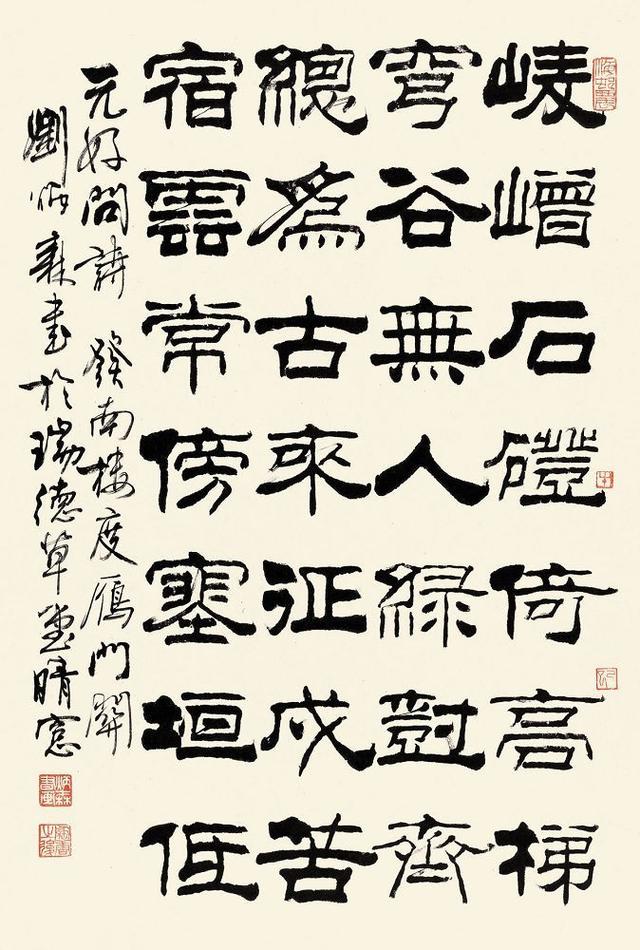 崚嶒石磴倚高梯
穹谷無人綠樹齊
總為古來征戍苦
宿雲常傍塞垣低
元好問詩 發南楼度鴈門關
劉炳森書於瑞德草堂晴窓